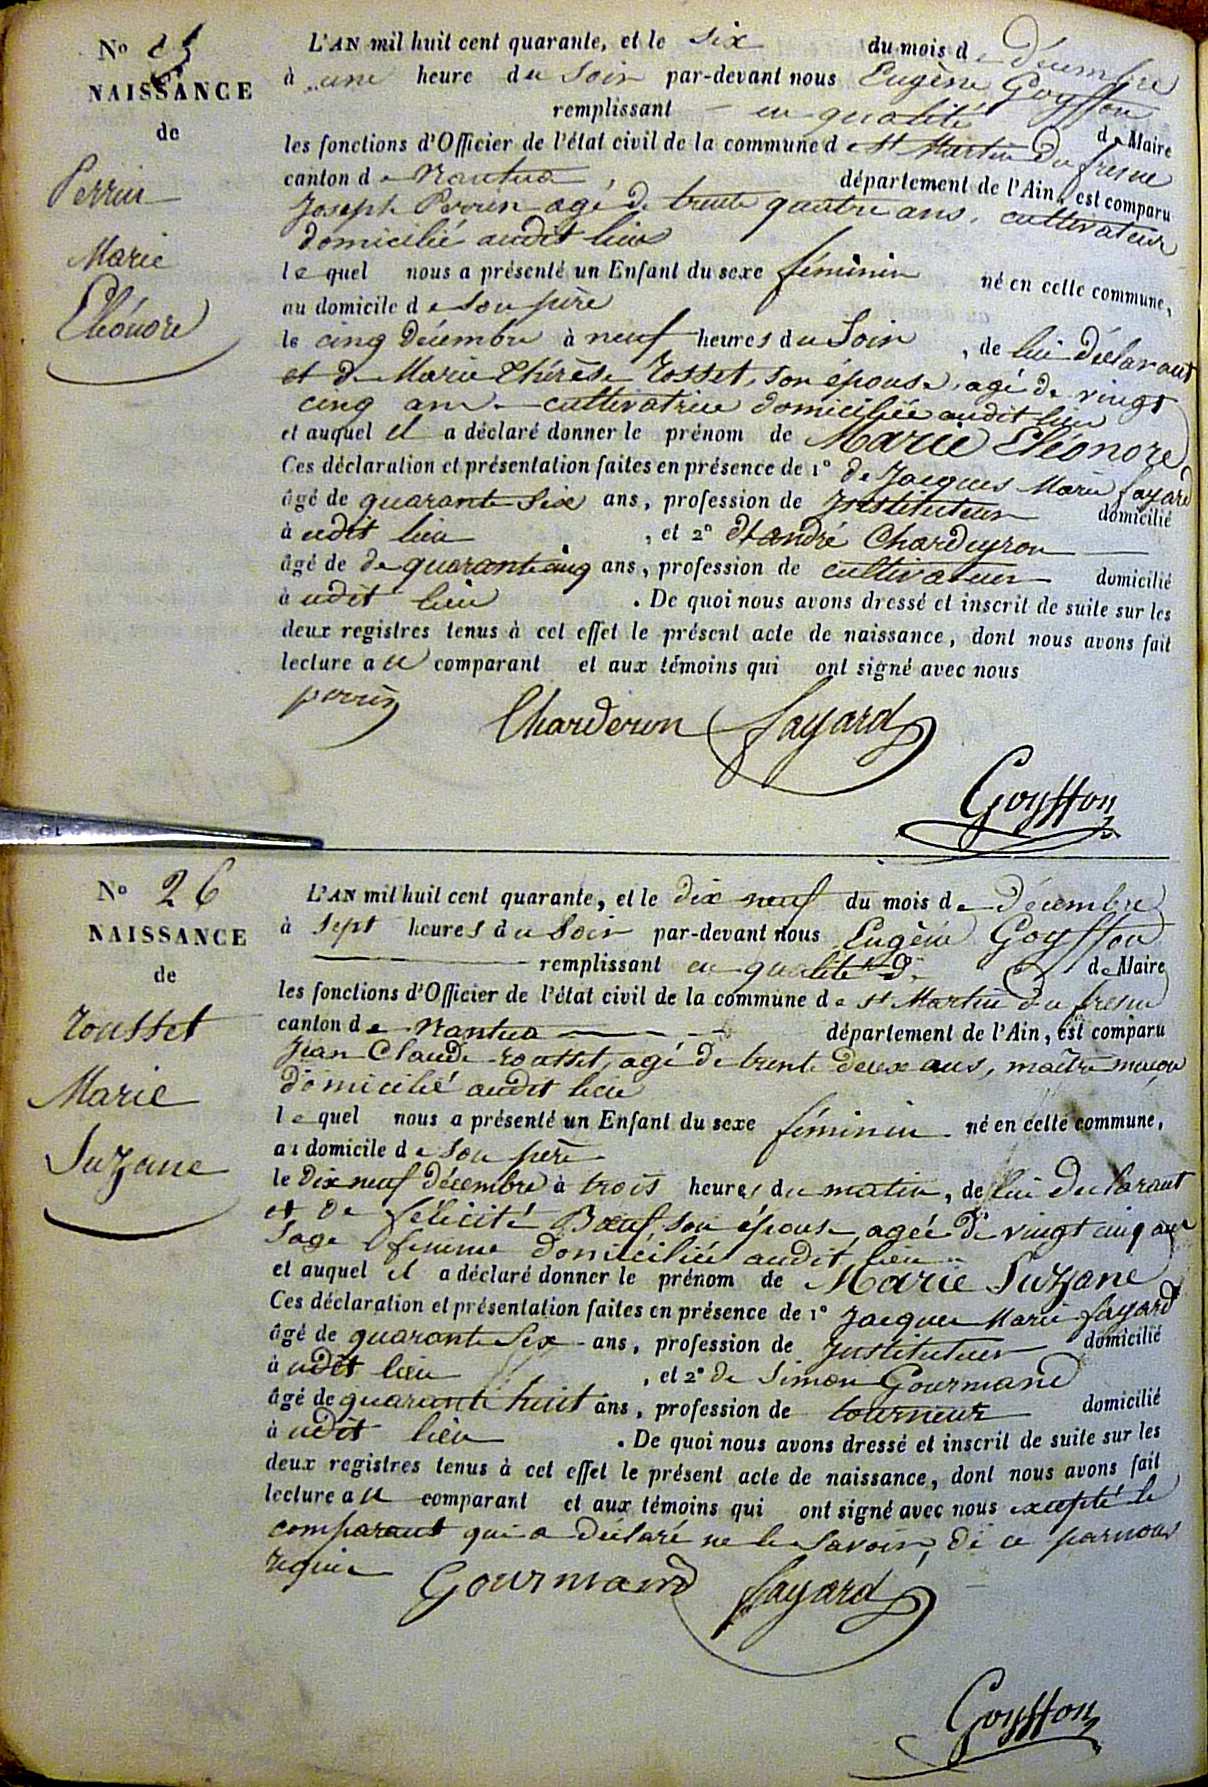 N° 25
NAISSANCE
de
Perrin
Marie
Eléonore
L'AN mil huit cent quarante, et le six du mois de décembre
à une heure du soir par-devant nous Eugène Goyffon
remplissant en qualité de Maire
les fonctions d'Officier de l'état civil de la commune de St Martin du fresne
canton de Nantua, département de l'Ain, est comparu
Joseph Perrin agé de trente quatre ans, cultivateur
domicilié audit lieu
lequel nous a présenté un Enfant du sexe féminin né en cette commune,
au domicile de son père
le cinq décembre à neuf heures du soir, de lui déclarant
et de Marie Thérèse Rosset, son épouse, agé de vingt
cinq ans cultivatrice domiciliée audit lieu
et auquel il a déclaré donner le prénom de Marie Eléonore
Ces déclaration et présentation faites en présence de 1° de Jacques Marie fayard
âgé de quarante six ans, profession de Instituteur domicilié
à udit lieu, et 2° d'andré Chardeyron
âgé de de quarante cinq ans, profession de cultivateur domicilié
à udit lieu. De quoi nous avons dressé et inscrit de suite sur les
deux registres tenus à cet effet le présent acte de naissance, dont nous avons fait
lecture au comparant et aux témoins qui ont signé avec nous
perrin Charderon fayard
Goyffon
N° 26
NAISSANCE
de
rousset
Marie
Suzane
L'AN mil huit cent quarante, et le dix neuf du mois de décembre
à sept heures du soir par-devant nous Eugène Goyffon
remplissant en qualité de Maire
les fonctions d'Officier de l'état civil de la commune de St Martin du fresne
canton de Nantua département de l'Ain, est comparu
Jean Claude rousset, agé de trente deux ans, maître maçon
domicilié audit lieu
lequel nous a présenté un Enfant du sexe féminin né en cette commune,
au domicile de son père
le dix neuf décembre à trois heures du matin, de lui déclarant
et de félicité Bœuf, son épouse, agée de vingt cinq ans
Sage femme domiciliée audit lieu
et auquel il a déclaré donner le prénom de Marie Suzane
Ces déclaration et présentation faites en présence de 1° Jacques Marie fayard
âgé de quarante six ans, profession de Instituteur domicilié
à udit lieu, et 2° de Simon Gourmand
âgé de quarante huit ans, profession de tourneur domicilié
à udit lieu. De quoi nous avons dressé et inscrit de suite sur les
deux registres tenus à cet effet le présent acte de naissance, dont nous avons fait
lecture au comparant et aux témoins qui ont signé avec nous excepté le
comparant qui a déclaré ne le savoir, de ce par nous
requis Gourmand fayard
Goyffon